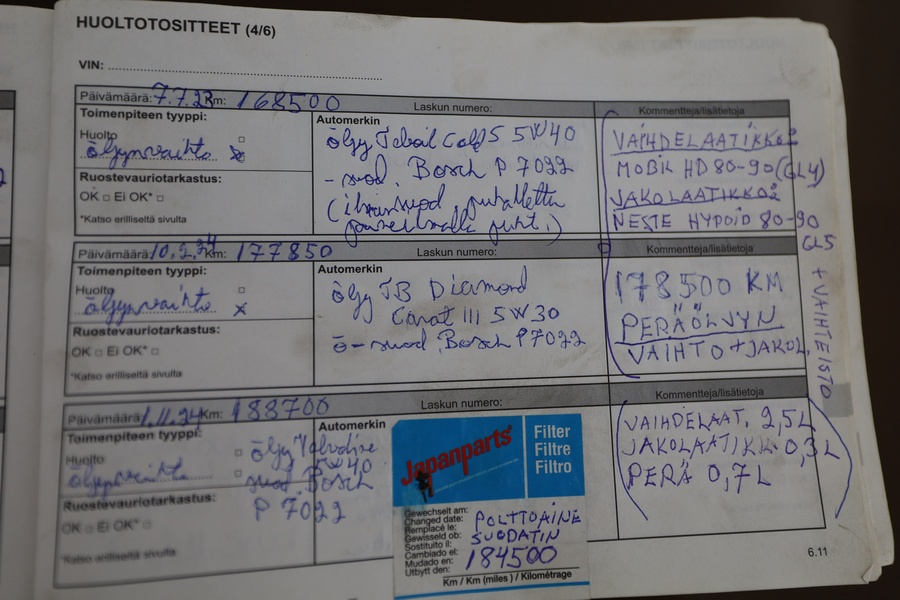 HUOLTOTOSITTEET (4/6)
VIN:
Päivämäärä: 7.7.23 Km: 168500 Laskun numero: Kommentteja/lisätietoja
Toimenpiteen tyyppi:
Huolto
öljynvaihto
Ruostevauriotarkastus:
OK Ei OK*
*Katso erilliseltä sivulta
Automerkin
öljy Teboil 5W40
- suod. Bosch P 7022
(ilmansuod. puhallettu
paineilmalla puht.)
VAIHDELAATIKKO:
MOBIL HD 80-90 (GL4)
JAKOLAATIKKO:
NESTE HYPOID 80-90
GL5
+ VAIHTEISTO
Päivämäärä: 10.2.24 Km: 177850 Laskun numero: Kommentteja/lisätietoja
Toimenpiteen tyyppi:
Huolto
öljynvaihto
Ruostevauriotarkastus:
OK Ei OK*
*Katso erilliseltä sivulta
Automerkin
öljy TB Diamond
Carat III 5W30
ö-suod. Bosch P7022
178500 KM
PERÄÖLJYN
VAIHTO + JAKOL.
Päivämäärä: 1.11.24 Km: 188700 Laskun numero: Kommentteja/lisätietoja
Toimenpiteen tyyppi:
Huolto
öljynvaihto
Ruostevauriotarkastus:
OK Ei OK*
*Katso erilliseltä sivulta
Automerkin
öljy
W40
suod. Bosch
P 7022
Japanparts
Filter
Filtre
Filtro
Gewechselt am:
Changed date:
Remplacé le:
Gewisseld ob:
Sostituito il:
Cambiado el:
Mudado en:
Utbytt den:
POLTTOAINE
SUODATIN
184500
Km / Km (miles) / Kilométrage
VAIHDELAAT. 2,5L
JAKOLAATIKK. 0,3L
PERÄ 0,7L
6.11